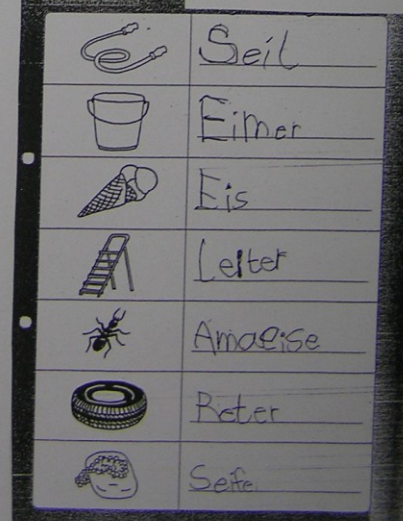 Seil
Eimer
Eis
Leiter
Amaeise
Reter
Seife